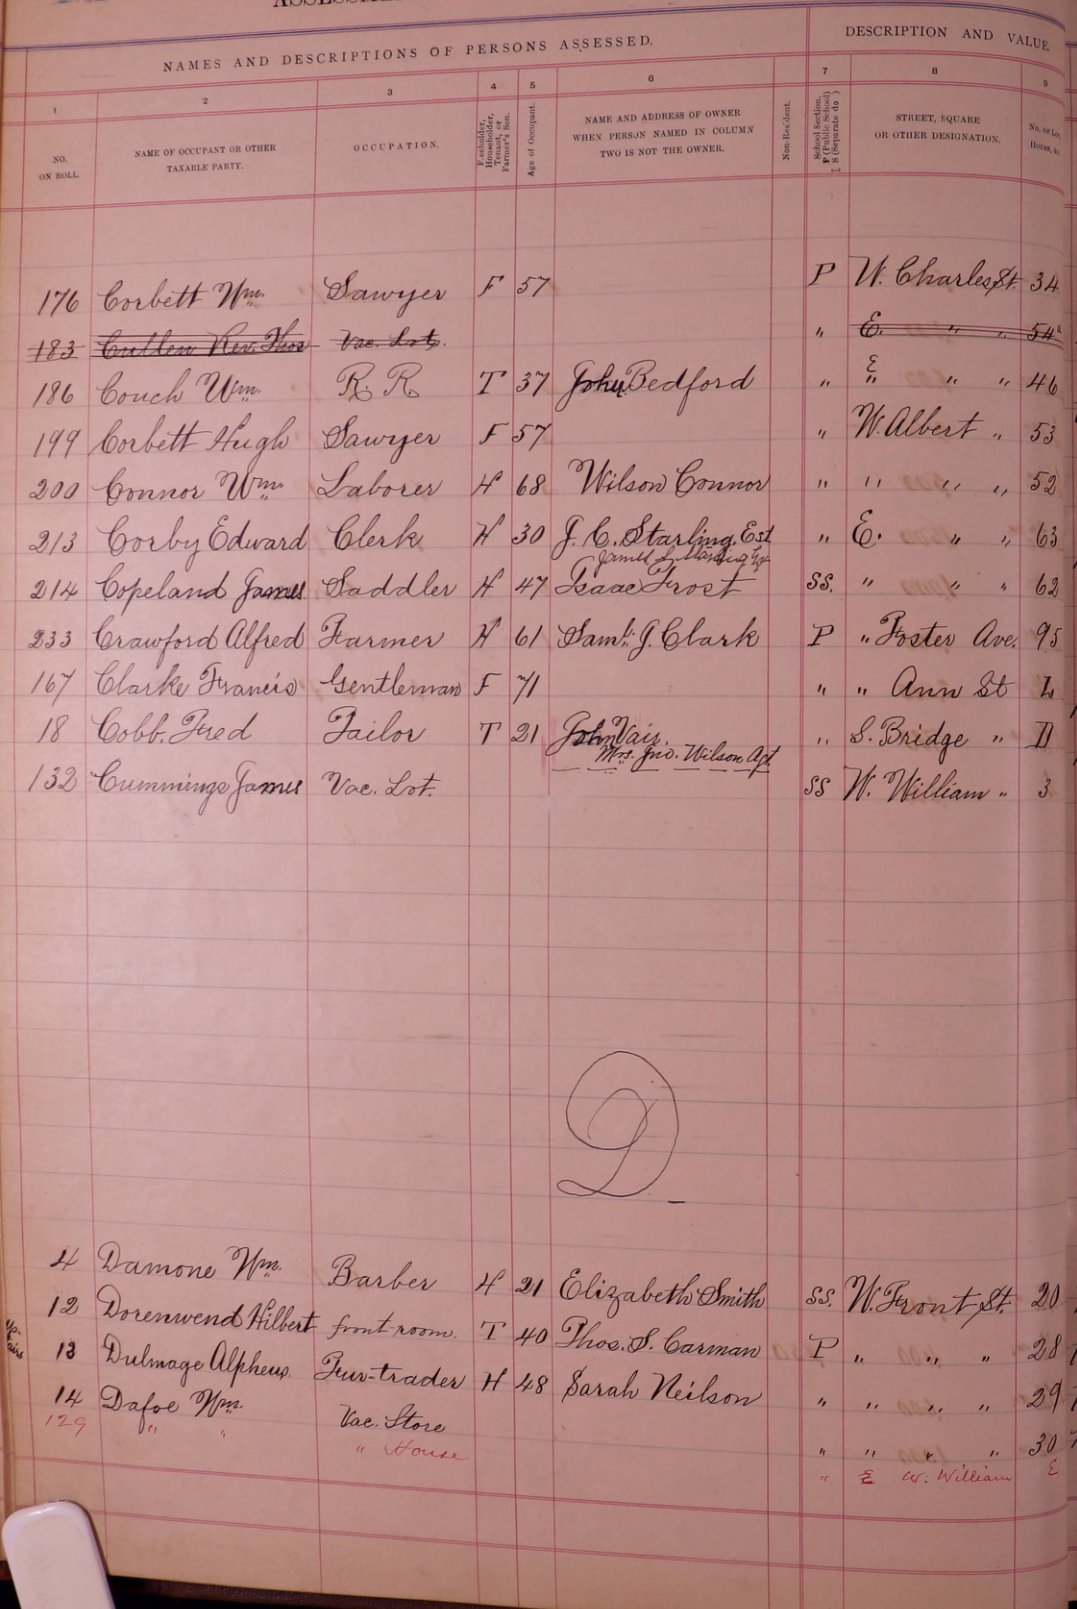 NAMES AND DESCRIPTIONS OF PERSONS ASSESSED.
DESCRIPTION AND VALUE.
1 2 3 4 5 6 7 8 9
NO. ON ROLL.
NAME OF OCCUPANT OR OTHER TAXABLE PARTY.
OCCUPATION.
Freeholder, Householder, Tenant, or Farmer's Son.
Age of Occupant.
NAME AND ADDRESS OF OWNER WHEN PERSON NAMED IN COLUMN TWO IS NOT THE OWNER.
Non-Resident.
School Section. P (Public School) S (Separate do )
STREET, SQUARE OR OTHER DESIGNATION.
No. of Lot, House, &c.
176 Corbett Wm. Sawyer F 57 P W. Charles St. 34
183 Cullen Rev. Thos Vac. Lots. " E. " " 54a
186 Couch Wm. R. R. T 37 John Bedford " E " " " 46
199 Corbett Hugh Sawyer F 57 " W. Albert " 53
200 Connor Wm. Laborer H 68 Wilson Connor " " " " 52
213 Corby Edward Clerk H 30 J. C. Starling Est " E. " " 63
James S.
214 Copeland James Saddler H 47 Isaac Frost SS. " " " 62
233 Crawford Alfred Farmer H 61 Saml. J. Clark P " Foster Ave. 95
167 Clarke Francis Gentleman F 71 " " Ann St L
18 Cobb. Fred Tailor T 21 John Vair. " S. Bridge " D
Mrs. Jno. Wilson Agt
132 Cummings James Vac. Lot. SS W. William " 3
D
4 Damone Wm. Barber H 21 Elizabeth Smith SS. W. Front St. 20
12 Dorenwend Hilbert front room. T 40 Thos. S. Carman P " " " 28
13 Dulmage Alpheus. Fur-trader H 48 Sarah Neilson " " " " 29
14 Dafoe Wm. Vac. Store " " " " 30
129 " " " House " E W. William E